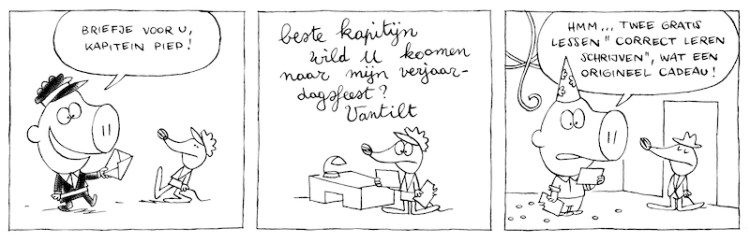 BRIEFJE VOOR U,
KAPITEIN PIEP!
beste kapitijn
wild U koomen
naar mijn verjaar-
dagsfeest?
Vantilt
HMM... TWEE GRATIS
LESSEN "CORRECT LEREN
SCHRIJVEN", WAT EEN
ORIGINEEL CADEAU!